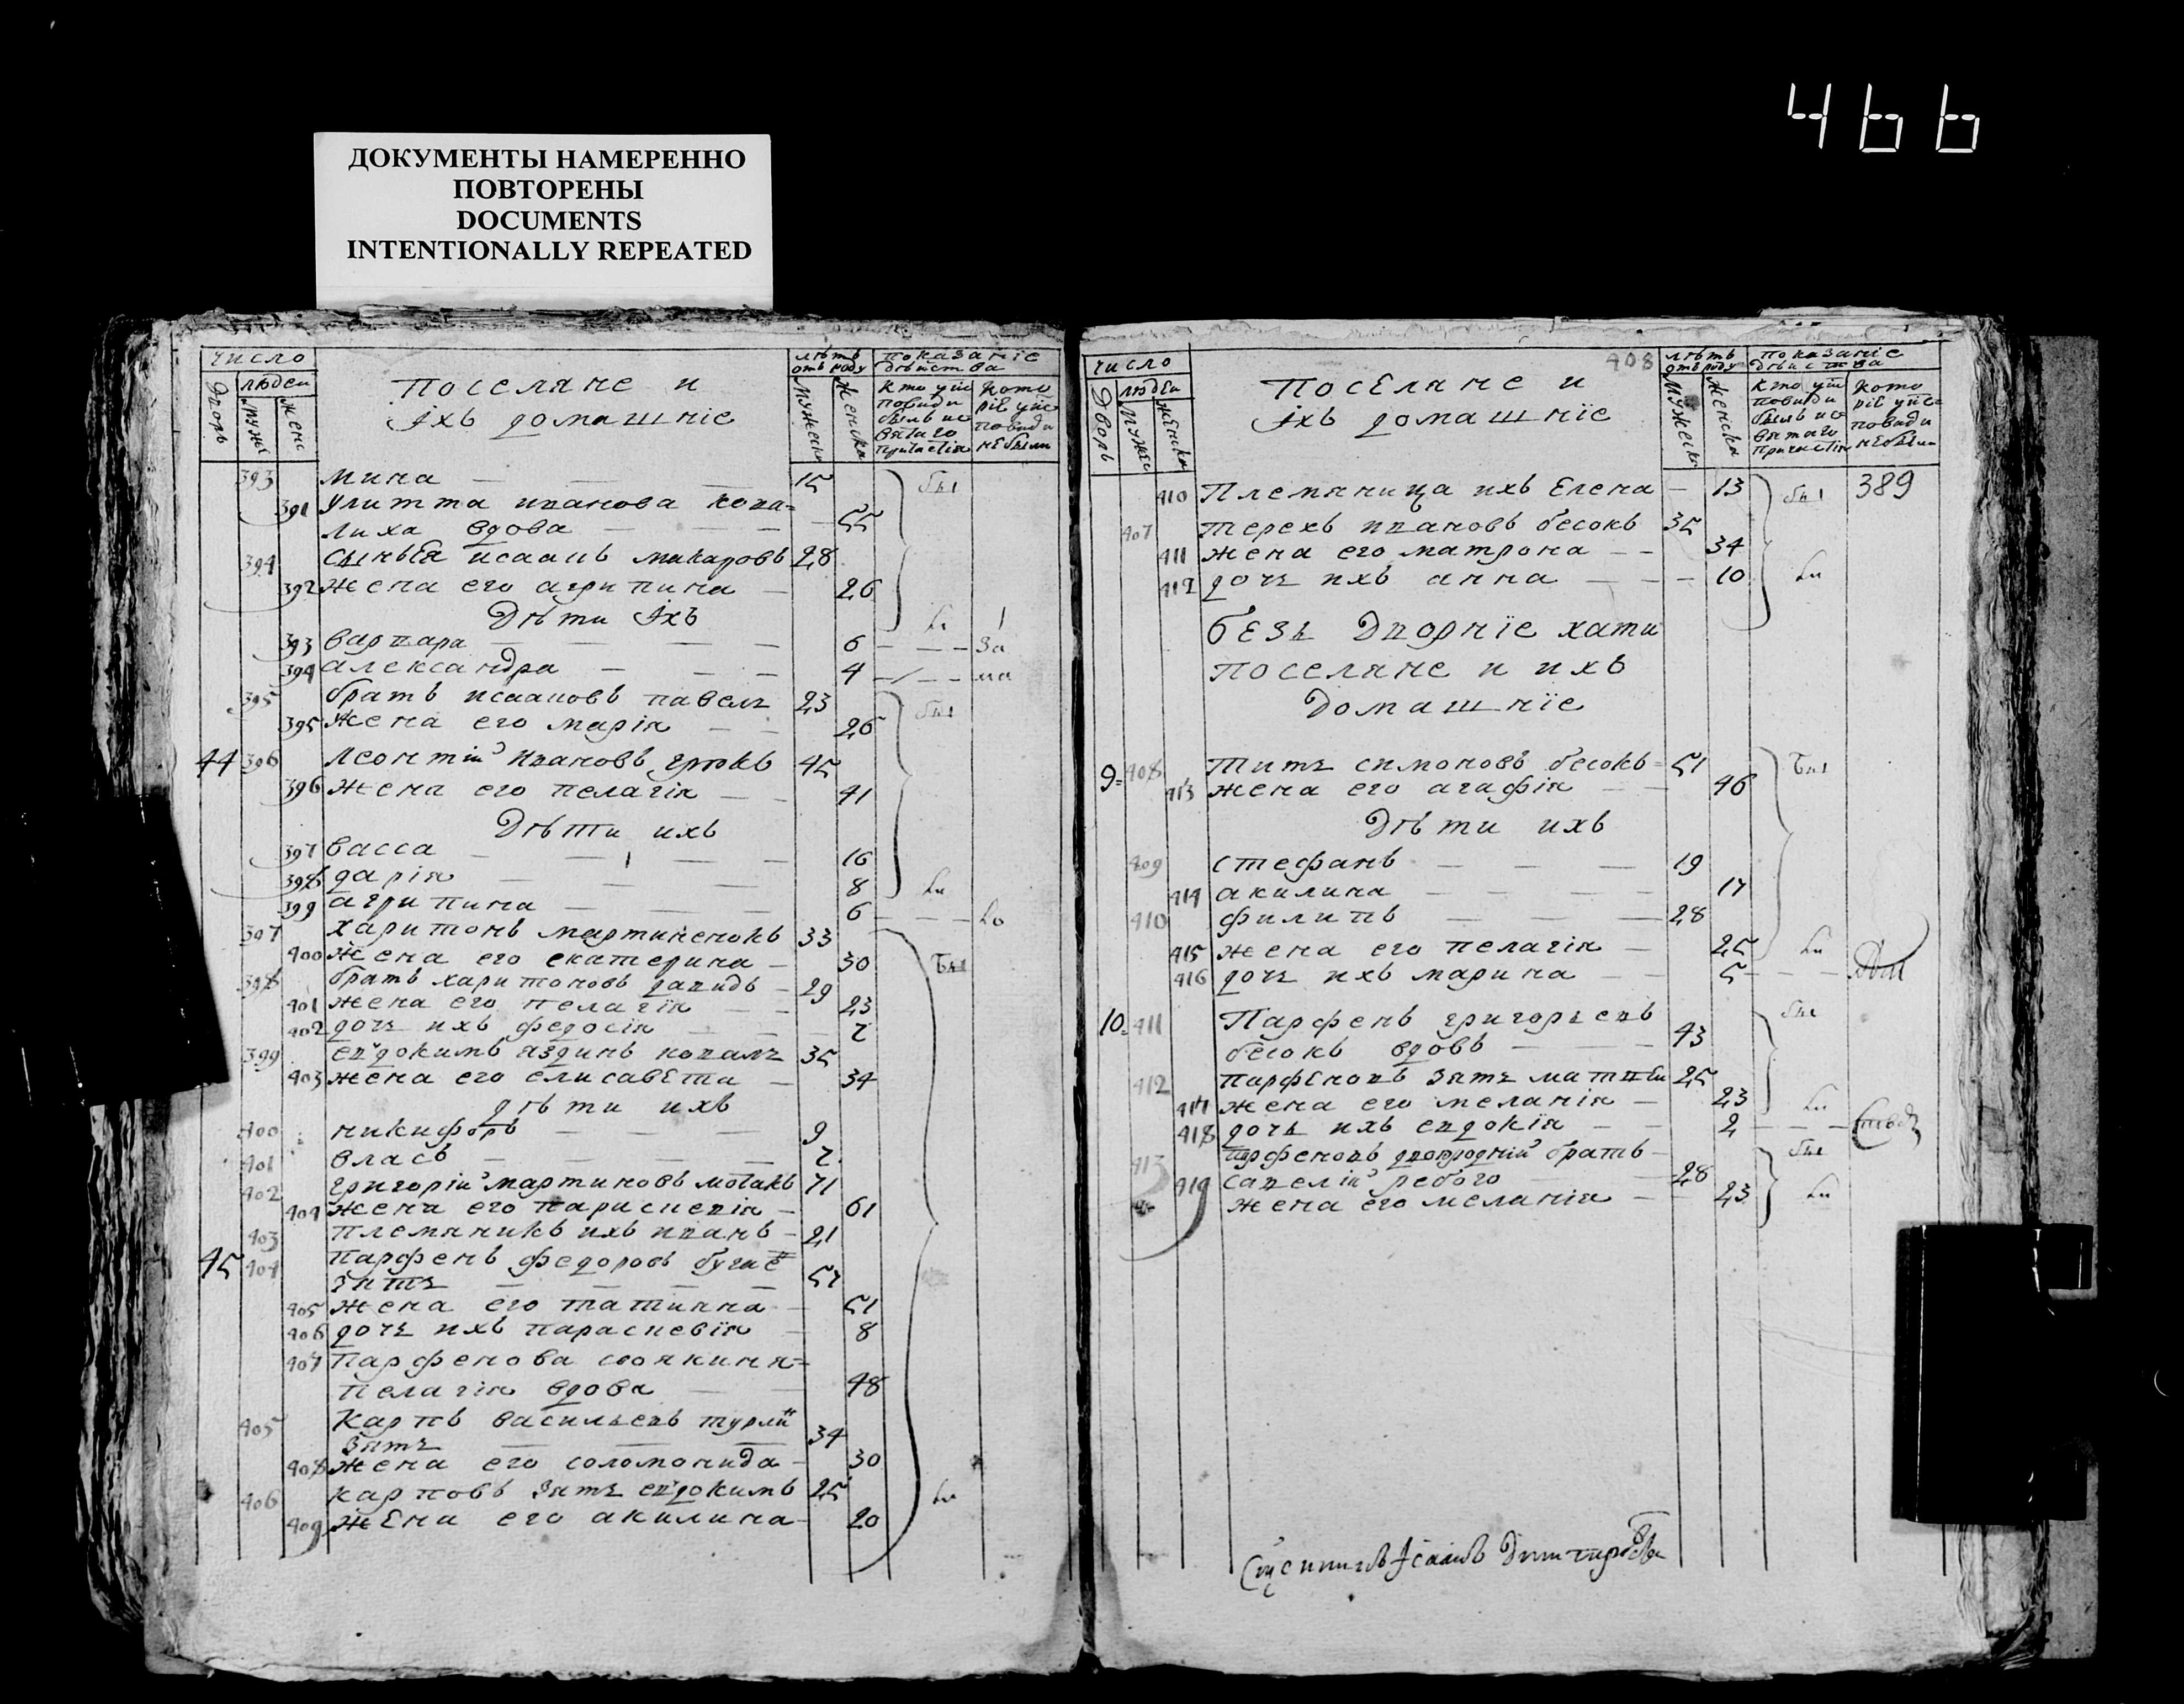 466
ДОКУМЕНТЫ НАМЕРЕННО
ПОВТОРЕНЫ
DOCUMENTS
INTENTIONALLY REPEATED
число
людей
дворъ
мужс
женс
Поселяне и
іхъ домашніе
лѣтъ
отъ роду
мужеска
женска
показаніе
дѣйства
кто у ис
повиди
былъ и с
вятаго
причастія
кото
ріе у ис
повиди
не были
393 мина 15 бы
391 Улитта иванова кова=
лиха вдова 55
394 сынъ Ея исаакъ макаровъ 28
392 жена его агрипина 26
Дѣти іхъ
ли
393 варвара 6 За
394 александра 4 ма
395 братъ исааковъ павелъ 23 бы
395 жена его марія 26
44 396 леонтій ивановъ 45
396 жена его пелагія 41
Дѣти ихъ
397 васса 16
398 дарія 8 ли
399 агрипина 6 ло
397 харитонъ мартиненокъ 33
400 жена его екатерина 30 бы
398 братъ харитоновъ давидъ 29
401 жена его пелагія 23
402 дочь ихъ федосія 7
399 евдокимъ коваль 35
403 жена его елисавета 34
дѣти ихъ
400 никифоръ 9
401 власъ 7
402 григорій мартиновъ 71
404 жена его парискевія 61
403 племяникъ ихъ иванъ 21
45 404 Парфенъ федоровъ
зять 57
405 жена его татияна 51
406 дочь ихъ параскевія 8
407 Парфенова своякиня=
пелагія вдова 48
405 Карпъ васильевъ
зять 34
408 жена его соломонида 30
406 карповъ зять евдокимъ 25 ли
409 жена его акилина 20
число
людей
дворъ
мужес
женска
408
Поселяне и
іхъ домашніе
лѣтъ
отъ роду
мужеска
женска
показаніе
дѣйства
кто у ис
повиди
былъ и с
вятаго
причастія
кото
ріе у ис=
повиди
не были
410 Племяница ихъ Елена 13 бы 389
407 терехъ ивановъ бесокъ 35
411 жена его матрона 34
412 дочь ихъ анна 10 ли
безъ дворніе хати
поселяне и ихъ
Домашніе
9= 408 титъ симоновъ бесокъ= 51 бы
413 жена его агафія 46
Дѣти ихъ
409 стефанъ 19
414 акилина 17
410 филипъ 28
415 жена его пелагія 25 ли
416 дочь ихъ марина 5
10= 411 Парфенъ григорьевъ бы
бесокъ вдовъ 43
412 парфеновъ зять матвѣй 25
417 жена его меланія 23 ли
418 дочь ихъ евдокія 2
413 парфеновъ двоюродній братъ бы
савелій 28
419 жена его меланія 23 ли